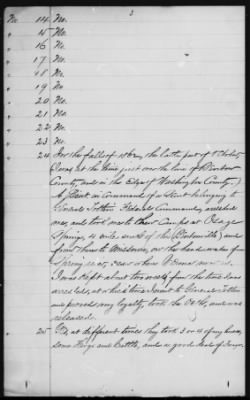 3
No 14 No.
" 15 No.
" 16 No.
" 17 No.
" 18 No.
" 19 No.
" 20 No.
" 21 No.
" 22 No.
" 23 No.
" 24 In the fall of 1862, the latter part of October,
I was at the time just over the line of Benton
County, and in the Edge of Washington County.
A in Command of a belonging to
General Federal Command, arrested
me, and took me to their Camp at Osage
Springs, 4 miles south of (Bentonville) and
from there to Missouri, on the head waters of
I was kept about two weeks from the time I was
arrested, at which time I went to General
and proved my loyalty, took the Oath, and was
released.
" 25 Yes, at different times they took 3 or 4 of my horses,
some Hogs and Cattle, and a good deal of